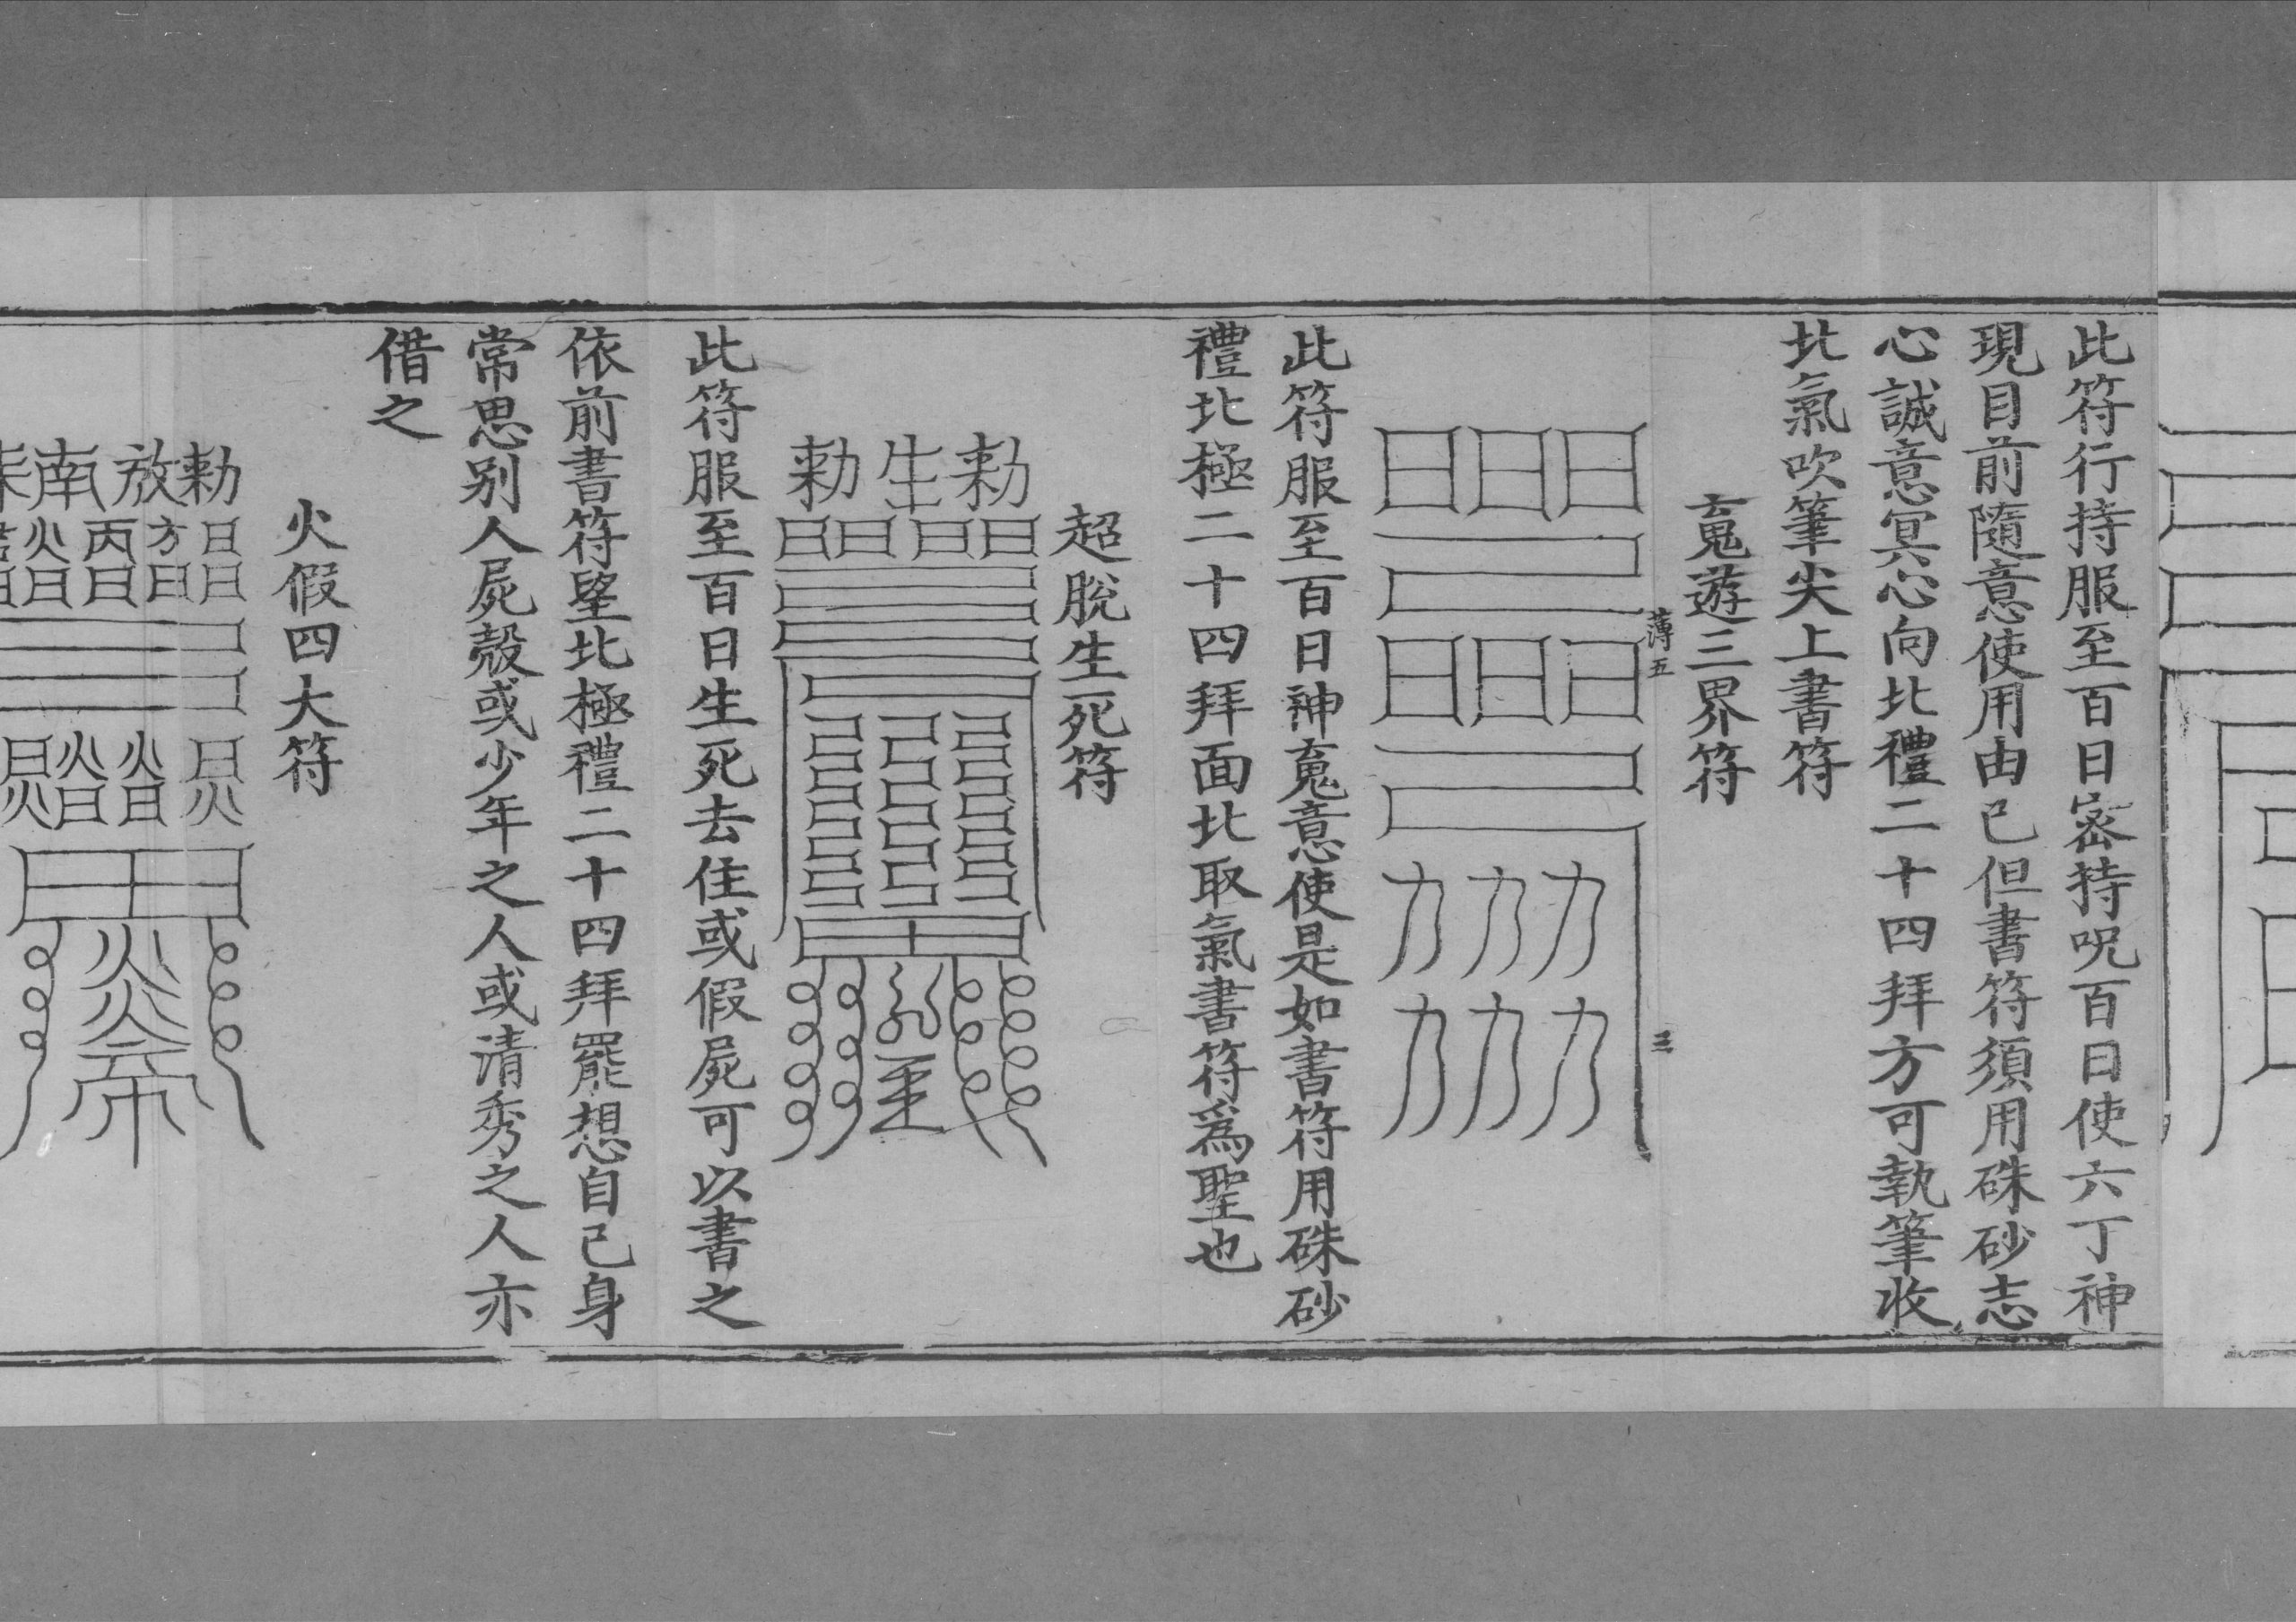 此符行持服至百日密持呪百日使六丁神
現目前隨意使用由己但書符須用硃砂志
心誠意冥心向北禮二十四拜方可執筆收
北氣吹筆尖上書符
䰟遊三界符
薄五
三
日日日
日日日
力力力
力力力
此符服至百日神䰟意使是如書符用硃砂
禮北極二十四拜面北取氣書符爲聖也
超脫生死符
勅生勅
日日日日
此符服至百日生死去住或假屍可以書之
依前書符朢北極禮二十四拜罷想自己身
常思別人屍殼或少年之人或清秀之人亦
借之
火假四大符
勅放南
日方丙火
日日日日